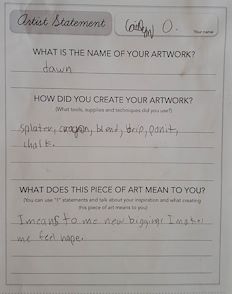 Artist Statement
O.
Your name
WHAT IS THE NAME OF YOUR ARTWORK?
dawn
HOW DID YOU CREATE YOUR ARTWORK?
(What tools, supplies and techniques did you use?)
splater, crayon, blend, drip, panit,
chalk.
WHAT DOES THIS PIECE OF ART MEAN TO YOU?
(You can use "I" statements and talk about your inspiration and what creating
this piece of art means to you)
I means to me new biggings I
me feel hope.